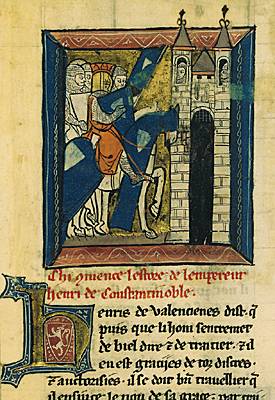 Chi mence lestore de lempereur
henri de Constantinoble.
Henris de valencienes dist. q
puis que li hom sentremet
de biel dire ⁊ de traitier. ⁊ il
en est gracijes de toz discres.
⁊ auctorisies. il se doit bn traueillier q
il ensiuce le non de sa grace. par